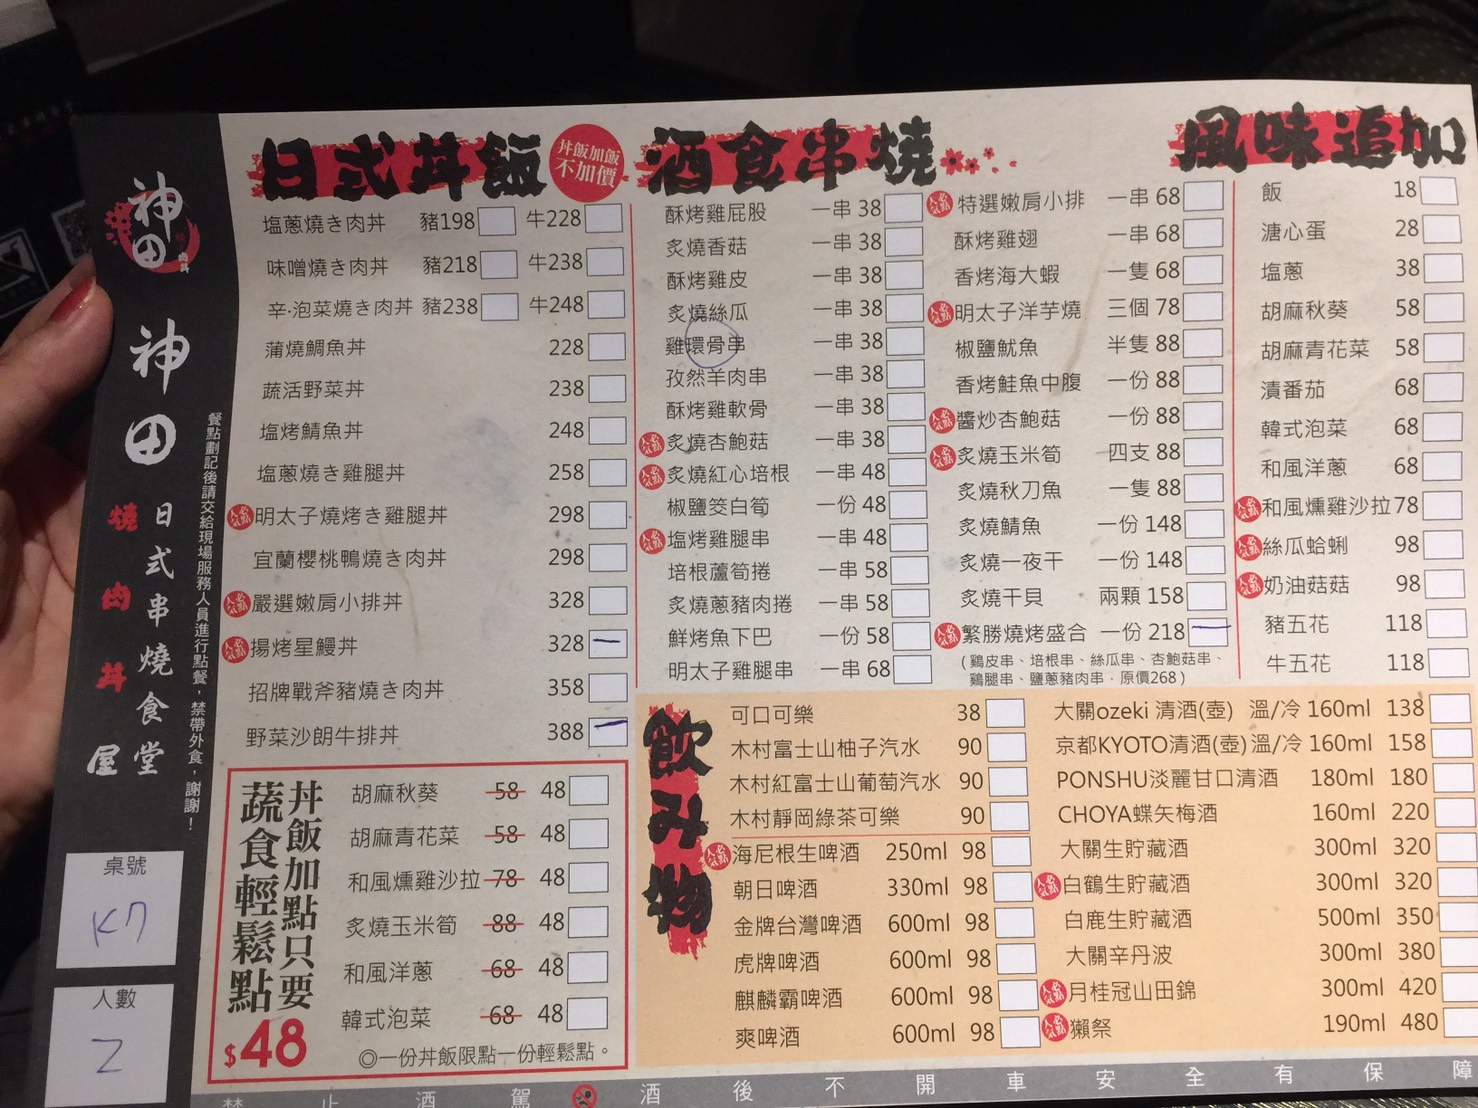 神田
神田
日式串燒食堂
燒肉丼屋
餐點劃記後請交給現場服務人員進行點餐，禁帶外食，謝謝！
桌號
K7
人數
2
日式丼飯
丼飯加飯
不加價
塩蔥燒き肉丼 豬198 牛228
味噌燒き肉丼 豬218 牛238
辛·泡菜燒き肉丼 豬238 牛248
蒲燒鯛魚丼 228
蔬活野菜丼 238
塩烤鯖魚丼 248
塩蔥燒き雞腿丼 258
人氣 明太子燒烤き雞腿丼 298
宜蘭櫻桃鴨燒き肉丼 298
人氣 嚴選嫩肩小排丼 328
人氣 揚烤星鰻丼 328
招牌戰斧豬燒き肉丼 358
野菜沙朗牛排丼 388
丼飯加點只要
蔬食輕鬆點
$48
胡麻秋葵 58 48
胡麻青花菜 58 48
和風燻雞沙拉 78 48
炙燒玉米筍 88 48
和風洋蔥 68 48
韓式泡菜 68 48
◎一份丼飯限點一份輕鬆點。
酒食串燒
酥烤雞屁股 一串 38
炙燒香菇 一串 38
酥烤雞皮 一串 38
炙燒絲瓜 一串 38
雞環骨串 一串 38
孜然羊肉串 一串 38
酥烤雞軟骨 一串 38
人氣 炙燒杏鮑菇 一串 38
人氣 炙燒紅心培根 一串 48
椒鹽筊白筍 一份 48
人氣 塩烤雞腿串 一串 48
培根蘆筍捲 一串 58
炙燒蔥豬肉捲 一串 58
鮮烤魚下巴 一份 58
明太子雞腿串 一串 68
人氣 特選嫩肩小排 一串 68
酥烤雞翅 一串 68
香烤海大蝦 一隻 68
人氣 明太子洋芋燒 三個 78
椒鹽魷魚 半隻 88
香烤鮭魚中腹 一份 88
人氣 醬炒杏鮑菇 一份 88
人氣 炙燒玉米筍 四支 88
炙燒秋刀魚 一隻 88
炙燒鯖魚 一份 148
炙燒一夜干 一份 148
炙燒干貝 兩顆 158
人氣 繁勝燒烤盛合 一份 218
(鷄皮串、培根串、絲瓜串、杏鮑菇串、
鷄腿串、鹽蔥豬肉串．原價268)
風味追加
飯 18
溏心蛋 28
塩蔥 38
胡麻秋葵 58
胡麻青花菜 58
漬番茄 68
韓式泡菜 68
和風洋蔥 68
人氣 和風燻雞沙拉 78
人氣 絲瓜蛤蜊 98
人氣 奶油菇菇 98
豬五花 118
牛五花 118
飲み物
可口可樂 38
木村富士山柚子汽水 90
木村紅富士山葡萄汽水 90
木村靜岡綠茶可樂 90
人氣 海尼根生啤酒 250ml 98
朝日啤酒 330ml 98
金牌台灣啤酒 600ml 98
虎牌啤酒 600ml 98
麒麟霸啤酒 600ml 98
爽啤酒 600ml 98
大關ozeki 清酒(壺) 溫/冷 160ml 138
京都KYOTO清酒(壺) 溫/冷 160ml 158
PONSHU淡麗甘口清酒 180ml 180
CHOYA蝶矢梅酒 160ml 220
大關生貯藏酒 300ml 320
人氣 白鶴生貯藏酒 300ml 320
白鹿生貯藏酒 500ml 350
大關辛丹波 300ml 380
人氣 月桂冠山田錦 300ml 420
人氣 獺祭 190ml 480
禁止酒駕 酒後不開車安全有保障